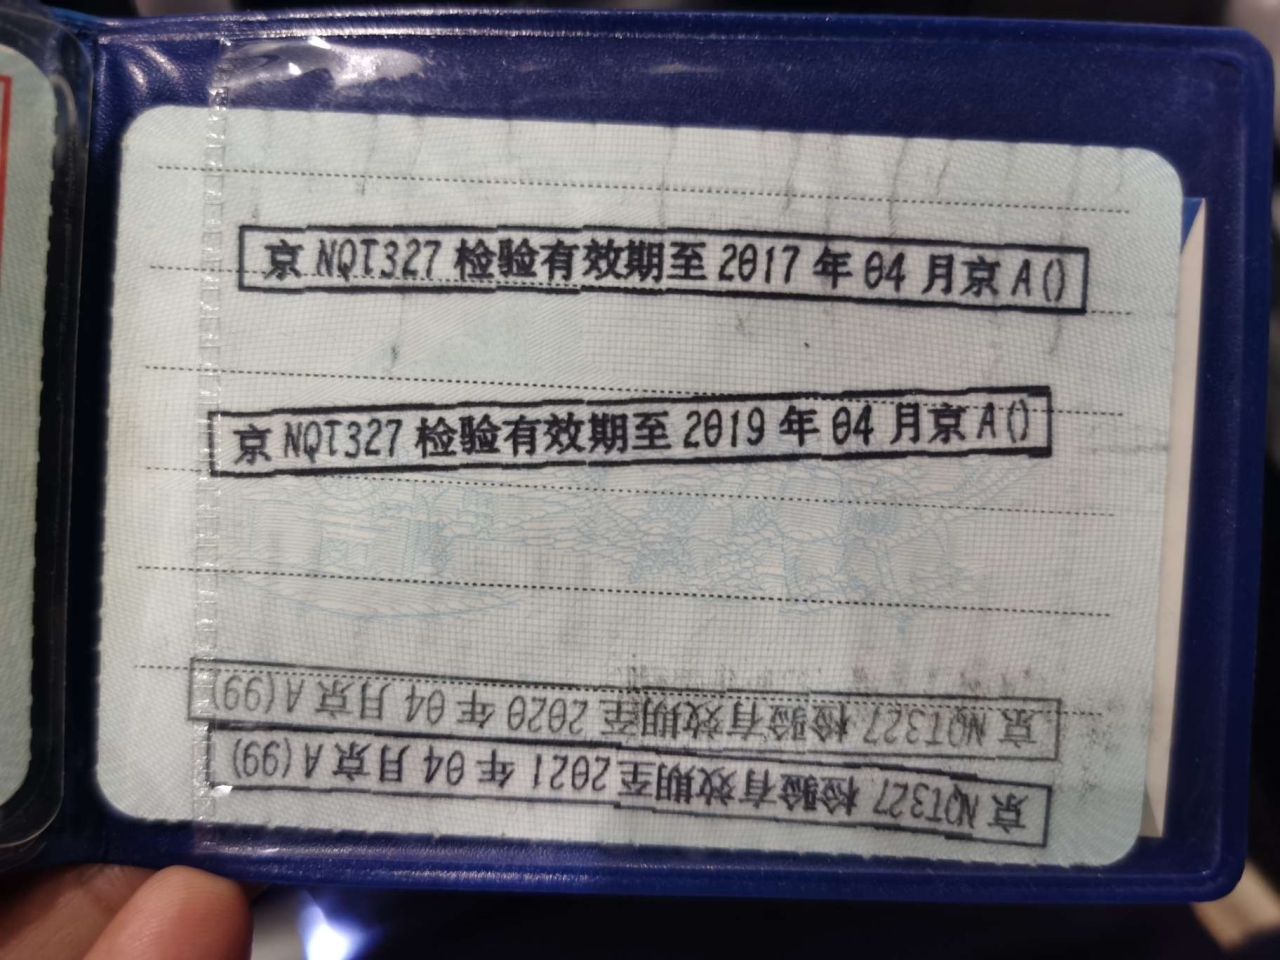 京 NQT327 检验有效期至 2017 年 04 月京 A()
京 NQT327 检验有效期至 2019 年 04 月京 A()
京 NQT327 检验有效期至 2020 年 04 月京 A(99)
京 NQT327 检验有效期至 2021 年 04 月京 A(99)